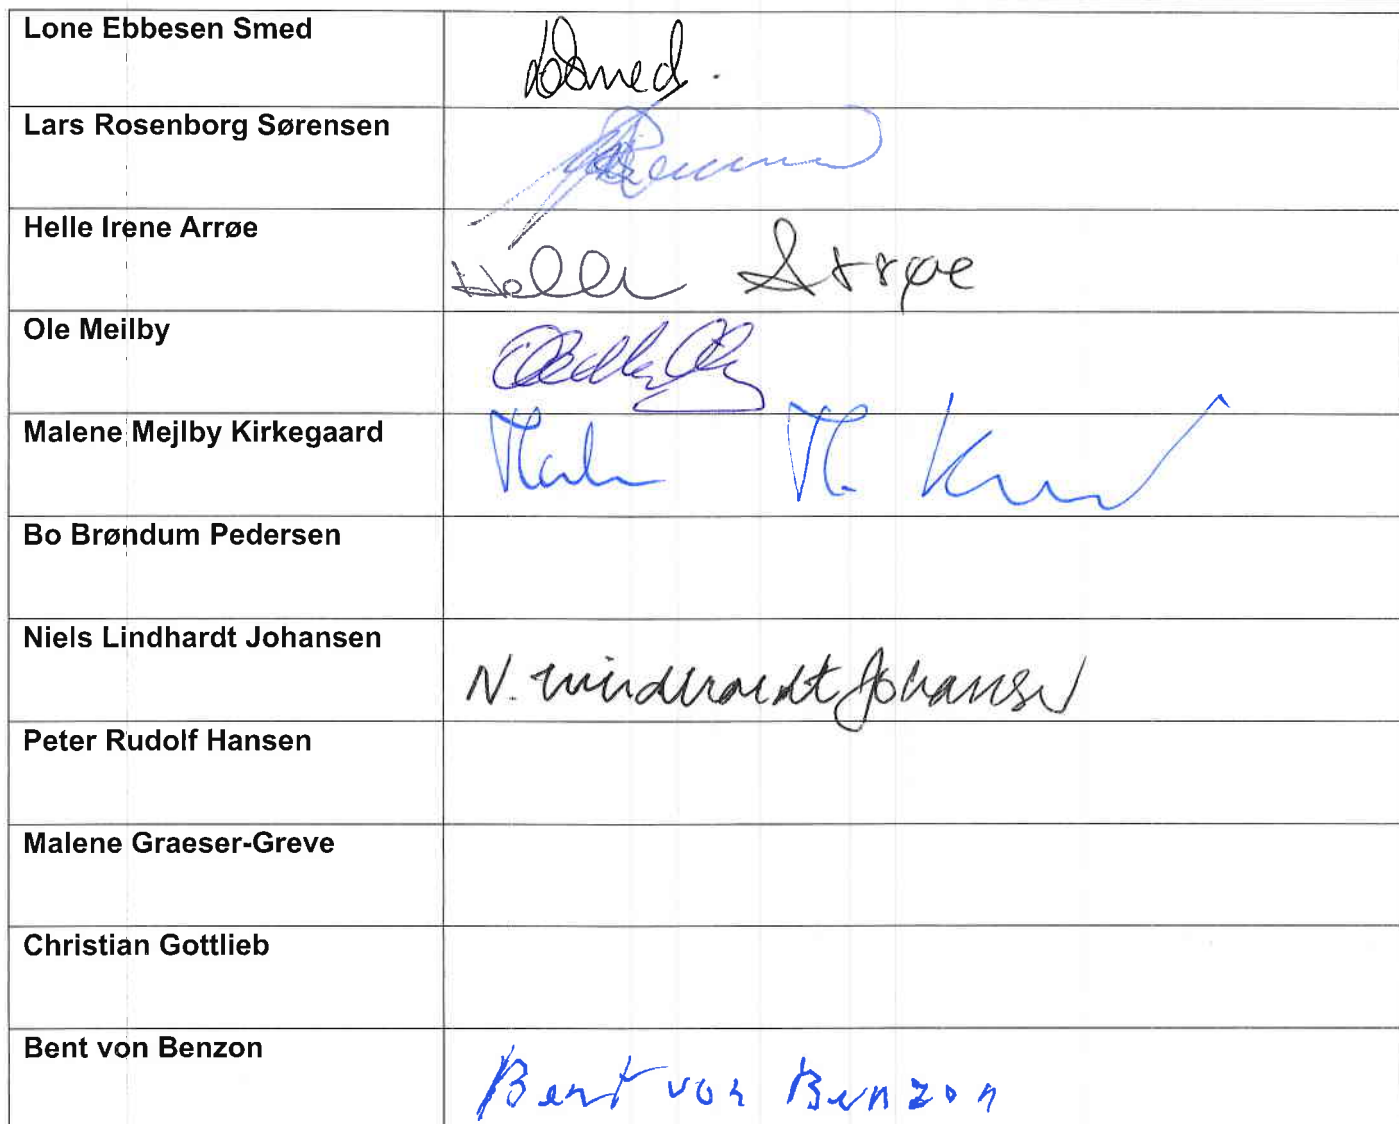 Lone Ebbesen Smed
Smed.
Lars Rosenborg Sørensen
Helle Irene Arrøe
Helle Arrøe
Ole Meilby
Malene Mejlby Kirkegaard
Bo Brøndum Pedersen
Niels Lindhardt Johansen
N. Lindhardt Johansen
Peter Rudolf Hansen
Malene Graeser-Greve
Christian Gottlieb
Bent von Benzon
Bent von Benzon